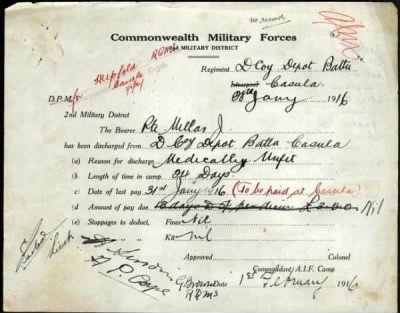 no record
Commonwealth Military Forces
MILITARY DISTRICT
Regiment D Coy Depot Battn
Casula
Jany 1916
D.P.M.
2nd Military District
The Bearer Pte Millar J.
has been discharged from D Coy Depot Battn Casula
(a) Reason for discharge Medically Unfit
(b) Length of time in camp 94 Days
c Date of last pay 31st Jany 16 (To be paid at Casula)
(d Amount of pay due Nil
(e) Stoppages to deduct Fines Nil
Kit nil
Approved Colonel
Commandant A.I.F. Camp
Date 1st February 1916